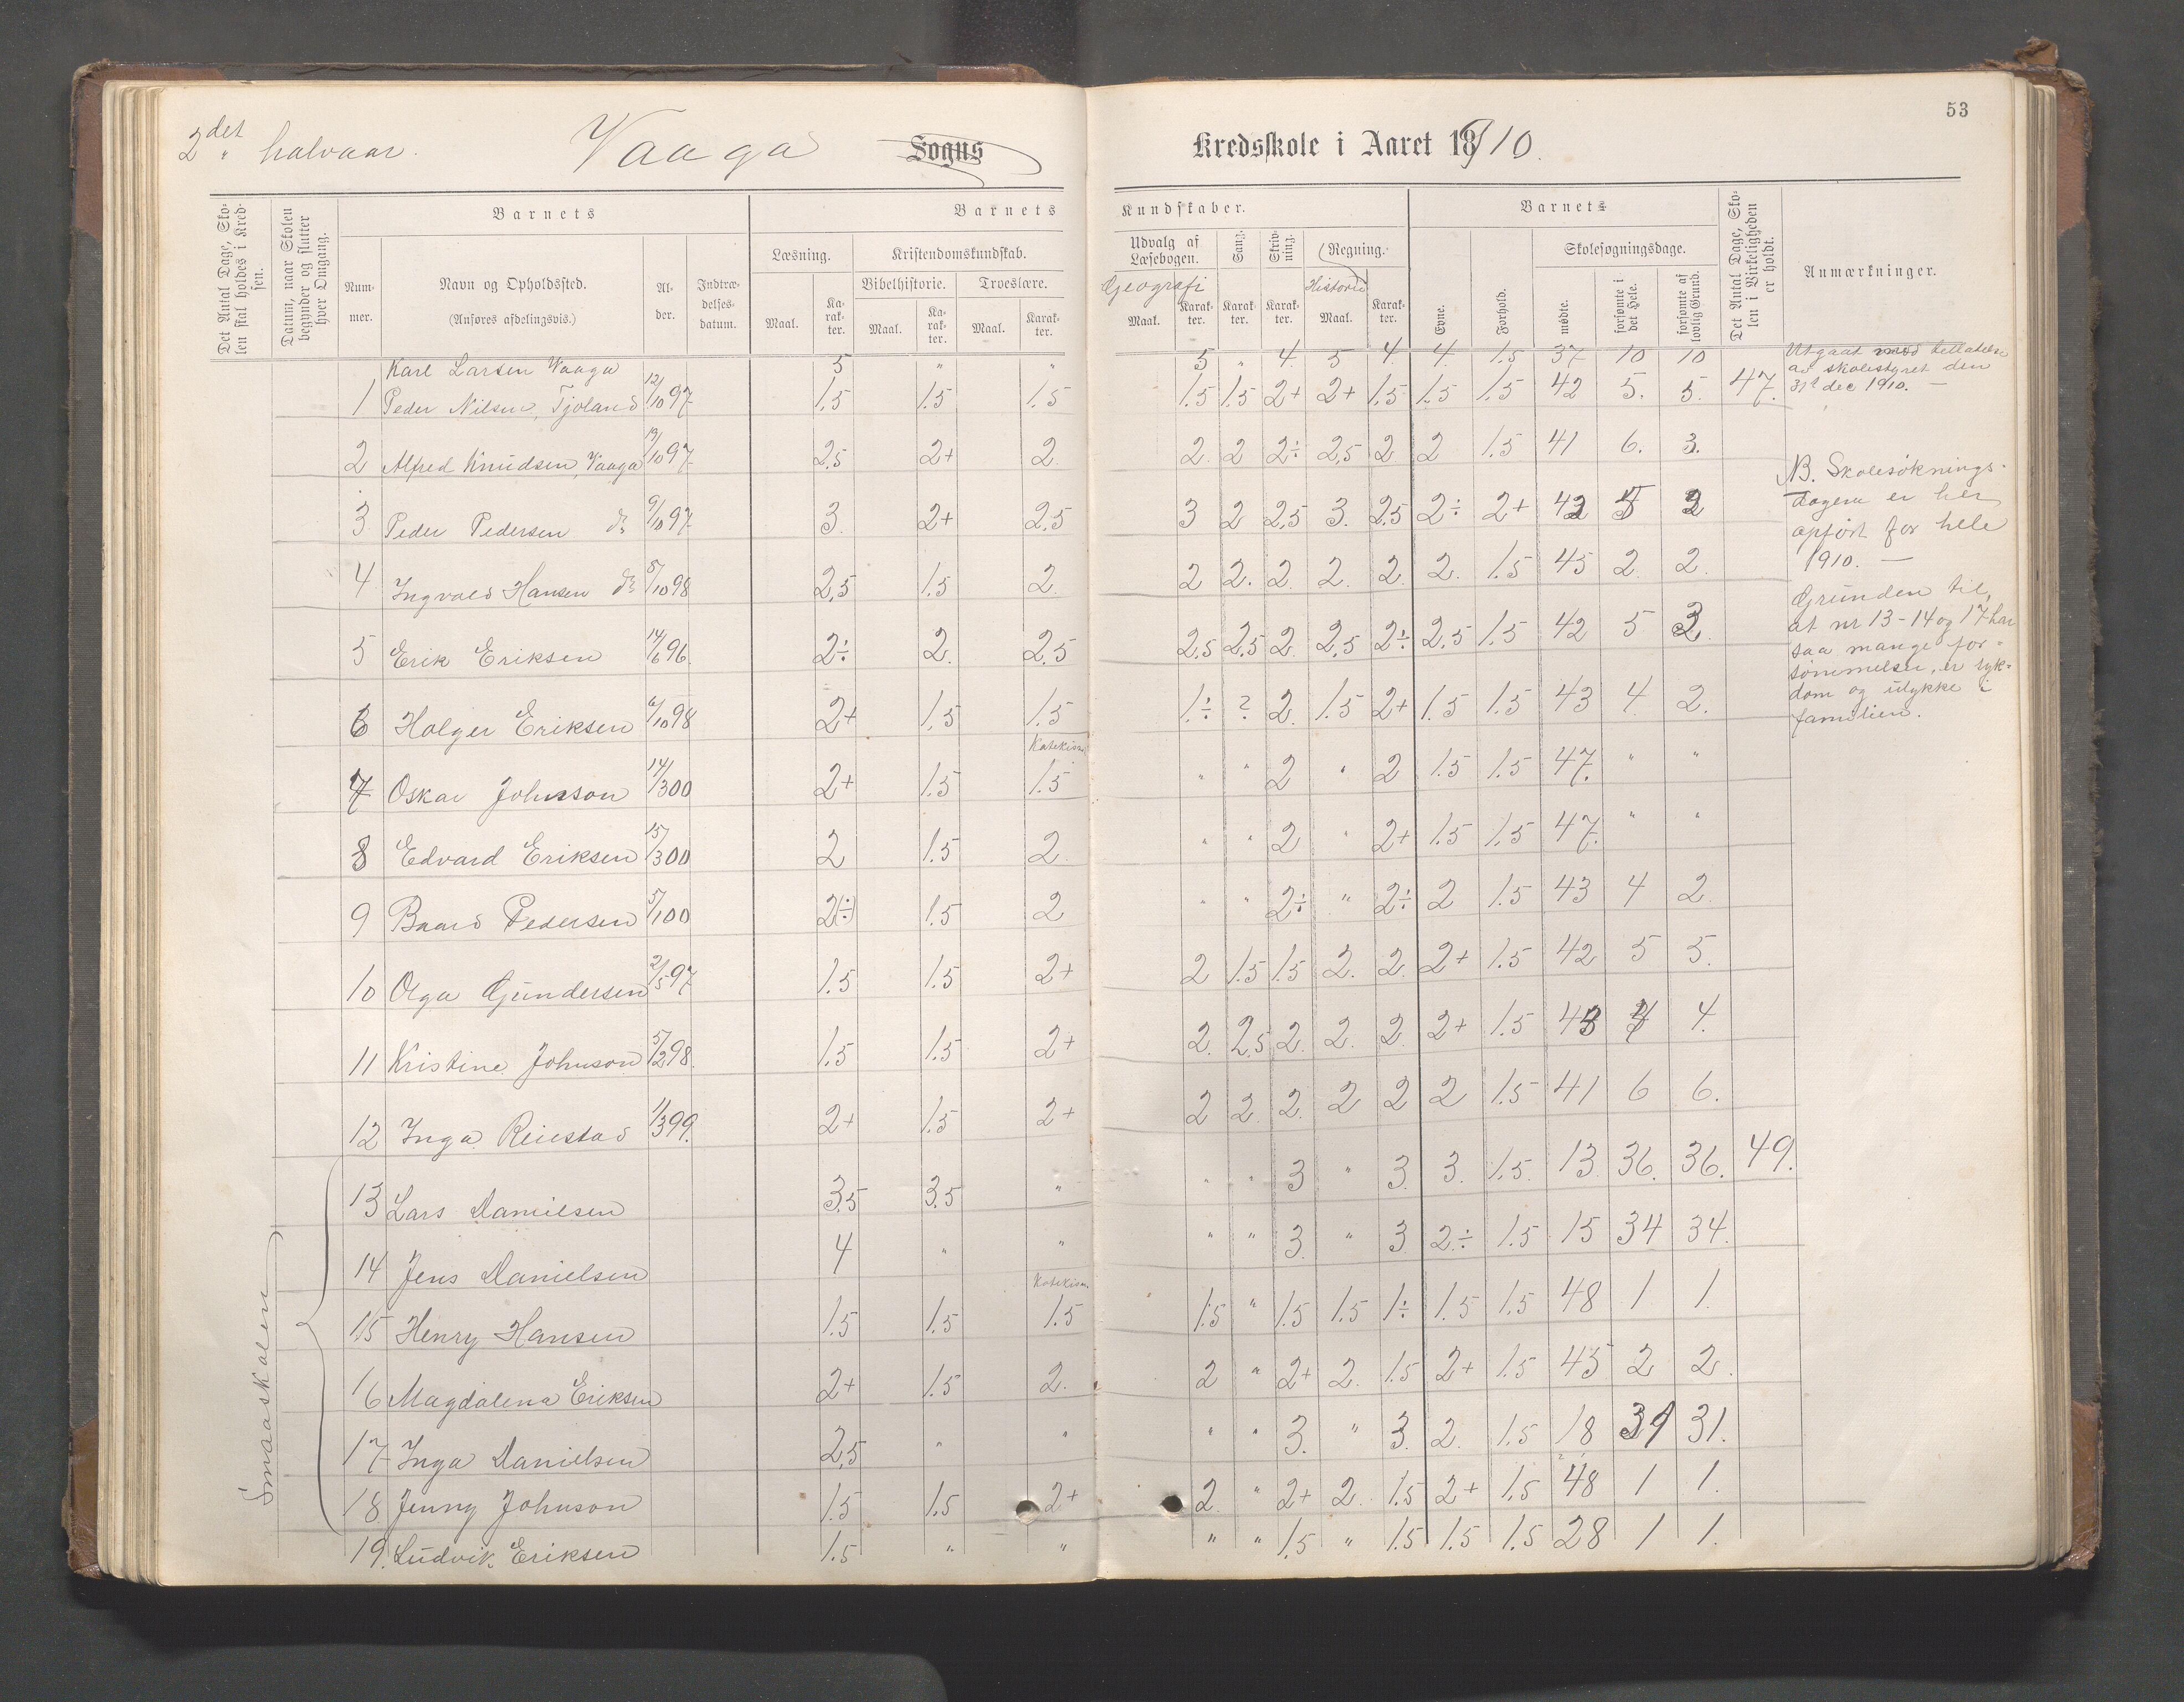 53
2det " halvaar. Vaaga Sogns Kredsskole i Aaret 1910.
Det Antal Dage, Skolen skal holdes i Kredsen.
Datum, naar Skolen begynder og slutter hver Omgang.
Barnets
Nummer.
Navn og Opholdssted.
(Anføres afdelingsvis.)
Alder.
Indtrædelses-datum.
Barnets Kundskaber.
Læsning.
Maal. Karakter.
Kristendomskundskab.
Bibelhistorie. Troeslære.
Maal. Karakter. Maal. Karakter.
Udvalg af Læsebogen.
Geografi
Maal. Karakter.
Sang.
Karakter.
Skrivning.
Karakter.
Regning.
Historie
Maal. Karakter.
Barnets
Evne. Forhold.
Skolesøgningsdage.
mødte. forsømte i det Hele. forsømte af lovlig Grund.
Det Antal Dage, Skolen i Virkeligheden er holdt.
Anmærkninger.
Karl Larsen Vaaga 5 " " 5 " 4. 5 4. 4. 1.5 37 10 10
1 Peder Nilsen, Tjoland 12/10 97 1.5 1.5 1.5 1.5 1.5 2+ 2+ 1.5 1.5 1.5 42 5. 5. 47.
2 Alfred Knudsen, Vaaga 19/10 97 2.5 2+ 2 2. 2 2÷ 2.5 2 2 1.5 41 6. 3.
3 Peder Pedersen do 9/10 97 3. 2+ 2.5 3 2 2.5 3. 2.5 2÷ 2+ 42 5 2
4 Ingvald Hansen do 5/10 98 2.5 1.5 2. 2 2. 2. 2. 2. 2. 1.5 45 2 2.
5 Erik Eriksen 14/6 96. 2÷ 2. 2.5 2.5 2.5 2. 2.5 2÷ 2.5 1.5 42 5 2.
6 Holger Eriksen 6/10 98 2+ 1.5 1.5 1÷ ? 2. 1.5 2+ 1.5 1.5 43 4 2.
Katekism.
7 Oskar Johnson 14/3 00 2+ 1.5 1.5 " " 2 " 2 1.5 1.5 47. " "
8 Edvard Eriksen 15/3 00 2 1.5 2. " " 2 " 2+ 1.5 1.5 47. " "
9 Baard Pedersen 5/1 00 2(÷) 1.5 2 " " 2÷ " 2÷ 2 1.5 43 4 2.
10 Olga Gundersen 2/5 97 1.5 1.5 2+ 2 1.5 1.5 2. 2. 2+ 1.5 42 5 5.
11 Kristine Johnson 5/2 98. 1.5 1.5 2+ 2. 2.5 2. 2. 2. 2+ 1.5 43 4 4.
12 Inga Reiestad 1/3 99. 2+ 1.5 2+ 2 2 2. 2 2 2 1.5 41 6 6.
Smaaskolen
13 Lars Danielsen 3.5 3.5 " " " 3 " 3. 3. 1.5. 13. 36. 36. 49.
14 Jens Danielsen 4 " " " " 3. " 3 2÷ 1.5 15 34 34.
Katekism.
15 Henry Hansen 1.5 1.5 1.5 1.5 " 1.5 1.5 1÷ 1.5 1.5 48 1 1.
16 Magdalena Eriksen 2+ 1.5 2. 2 " 2+ 2. 1.5 2+ 1.5 45 2 2.
17 Inga Danielsen 2.5 " " " " 3. " 3. 2. 1.5 18 31 31.
18 Jenny Johnson 1.5 1.5 2+ 2. " 2+ 2. 1.5 2+ 1.5 48 1 1.
19. Ludvik Eriksen 1.5 " " " " 1.5 " 1.5 1.5 1.5 28 1 1.
Utgaat med tillatelse
av skolestyret den
31te dec 1910. —
NB. Skolesøknings-
dagene er her
opført for hele
1910. —
Grunden til,
at nr 13-14 og 17 har
saa mange for-
sømmelser, er syk-
dom og ulykke i
familien.